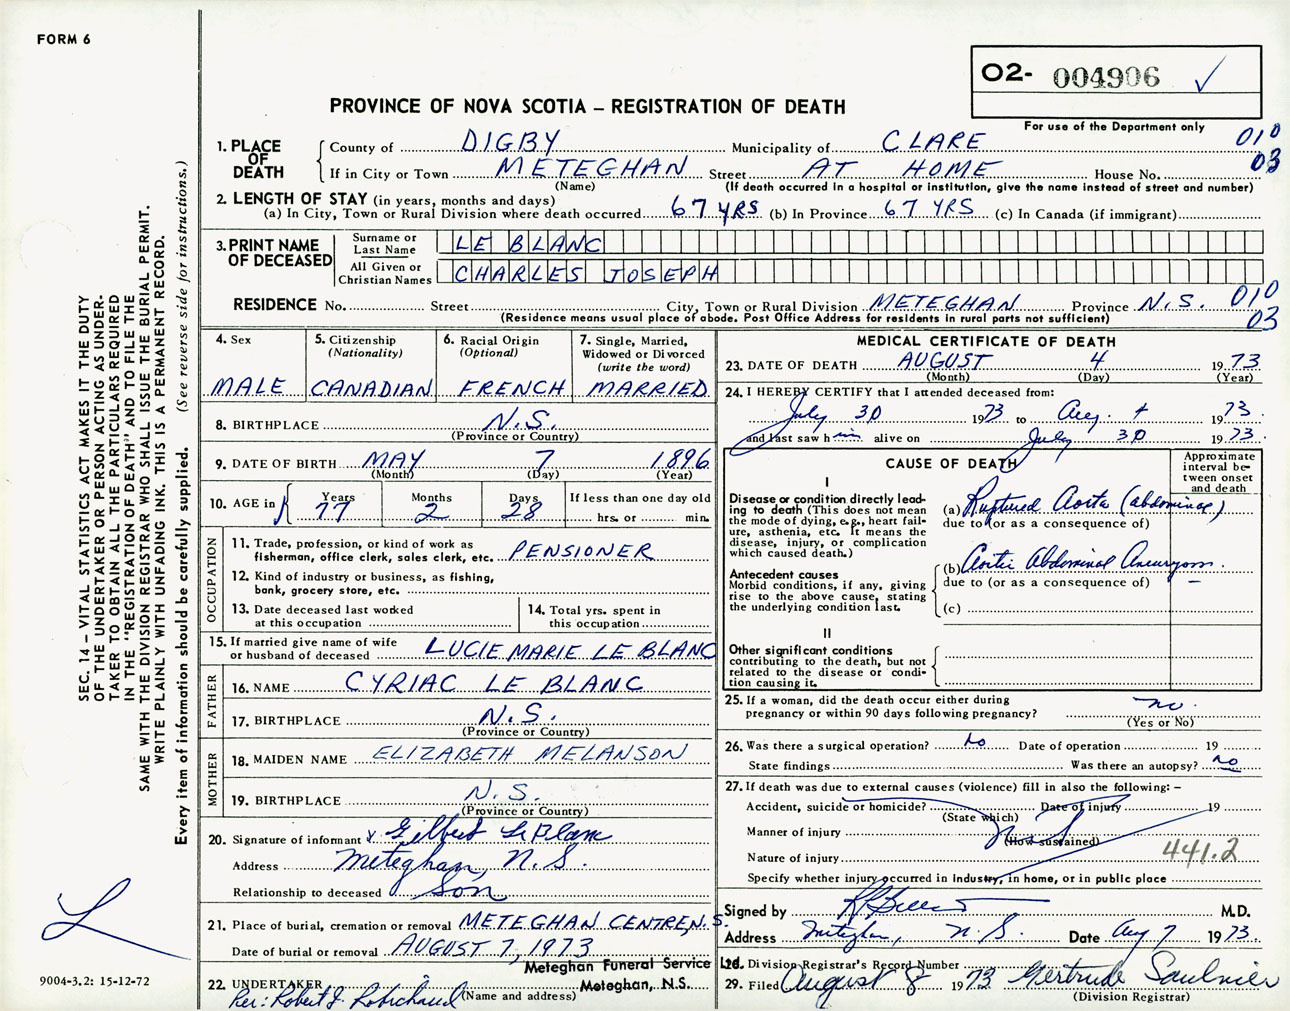 FORM 6
O2- 004906 ✓
PROVINCE OF NOVA SCOTIA – REGISTRATION OF DEATH
For use of the Department only
010
03
1. PLACE OF DEATH
County of DIGBY Municipality of CLARE
If in City or Town METEGHAN Street AT HOME House No.
(Name) (If death occurred in a hospital or institution, give the name instead of street and number)
2. LENGTH OF STAY (in years, months and days)
(a) In City, Town or Rural Division where death occurred 67 YRS (b) In Province 67 YRS (c) In Canada (if immigrant)
3. PRINT NAME OF DECEASED
Surname or Last Name LE BLANC
All Given or Christian Names CHARLES JOSEPH
RESIDENCE No. Street City, Town or Rural Division METEGHAN Province N.S. 010
(Residence means usual place of abode. Post Office Address for residents in rural parts not sufficient) 03
4. Sex
MALE
5. Citizenship
(Nationality)
CANADIAN
6. Racial Origin
(Optional)
FRENCH
7. Single, Married,
Widowed or Divorced
(write the word)
MARRIED
8. BIRTHPLACE N.S.
(Province or Country)
9. DATE OF BIRTH MAY 7 1896
(Month) (Day) (Year)
10. AGE in Years 77 Months 2 Days 28 If less than one day old
hrs. or min.
OCCUPATION
11. Trade, profession, or kind of work as
fisherman, office clerk, sales clerk, etc. PENSIONER
12. Kind of industry or business, as fishing,
bank, grocery store, etc.
13. Date deceased last worked
at this occupation
14. Total yrs. spent in
this occupation
15. If married give name of wife
or husband of deceased LUCIE MARIE LE BLANC
FATHER
16. NAME CYRIAC LE BLANC
17. BIRTHPLACE N.S.
(Province or Country)
MOTHER
18. MAIDEN NAME ELIZABETH MELANSON
19. BIRTHPLACE N.S.
(Province or Country)
20. Signature of informant x Gilbert LeBlanc
Address Meteghan, N.S.
Relationship to deceased Son
21. Place of burial, cremation or removal METEGHAN CENTRE, N.S.
Date of burial or removal AUGUST 7, 1973
Meteghan Funeral Service Ltd.
22. UNDERTAKER Meteghan, N.S.
Per: Robert J. Robichaud (Name and address)
MEDICAL CERTIFICATE OF DEATH
23. DATE OF DEATH AUGUST 4 1973
(Month) (Day) (Year)
24. I HEREBY CERTIFY that I attended deceased from:
July 30 1973 to Aug. 4 1973
and last saw him alive on July 30 1973
CAUSE OF DEATH
Approximate interval between onset and death
I
Disease or condition directly leading to death (This does not mean the mode of dying, e.g., heart failure, asthenia, etc. It means the disease, injury, or complication which caused death.)
(a) Ruptured Aorta (abdominal)
due to (or as a consequence of)
Antecedent causes
Morbid conditions, if any, giving rise to the above cause, stating the underlying condition last.
(b) Aortic Abdominal Aneurysm
due to (or as a consequence of)
(c)
II
Other significant conditions
contributing to the death, but not related to the disease or condition causing it.
25. If a woman, did the death occur either during
pregnancy or within 90 days following pregnancy? no.
(Yes or No)
26. Was there a surgical operation? No Date of operation 19
State findings Was there an autopsy? no
27. If death was due to external causes (violence) fill in also the following: –
Accident, suicide or homicide? Date of injury 19
(State which)
Manner of injury
(How sustained)
Nature of injury 441.2
Specify whether injury occurred in Industry, in home, or in public place
Signed by M.D.
Address Meteghan, N.S. Date Aug 7 1973
28. Division Registrar's Record Number
29. Filed August 8 1973 Gertrude Saulnier
(Division Registrar)
SEC. 14 – VITAL STATISTICS ACT MAKES IT THE DUTY
OF THE UNDERTAKER OR PERSON ACTING AS UNDER-
TAKER TO OBTAIN ALL THE PARTICULARS REQUIRED
IN THE "REGISTRATION OF DEATH" AND TO FILE THE
SAME WITH THE DIVISION REGISTRAR WHO SHALL ISSUE THE BURIAL PERMIT.
WRITE PLAINLY WITH UNFADING INK. THIS IS A PERMANENT RECORD.
Every item of information should be carefully supplied. (See reverse side for instructions.)
L
9004-3.2: 15-12-72